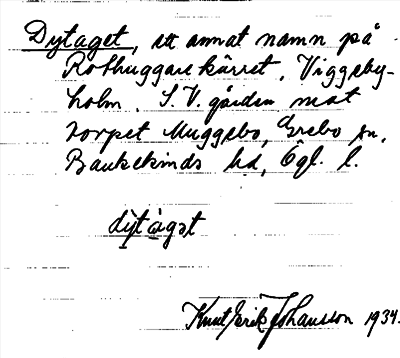 Dytaget, ett annat namn på
Rothuggarekärret, Viggeby-
holm. S.V. gården mot
torpet Muggebo, Grebo sn,
Bankekinds hd, Ögl. l.
dỳtàgət
Knut Erik Johansson 1934.